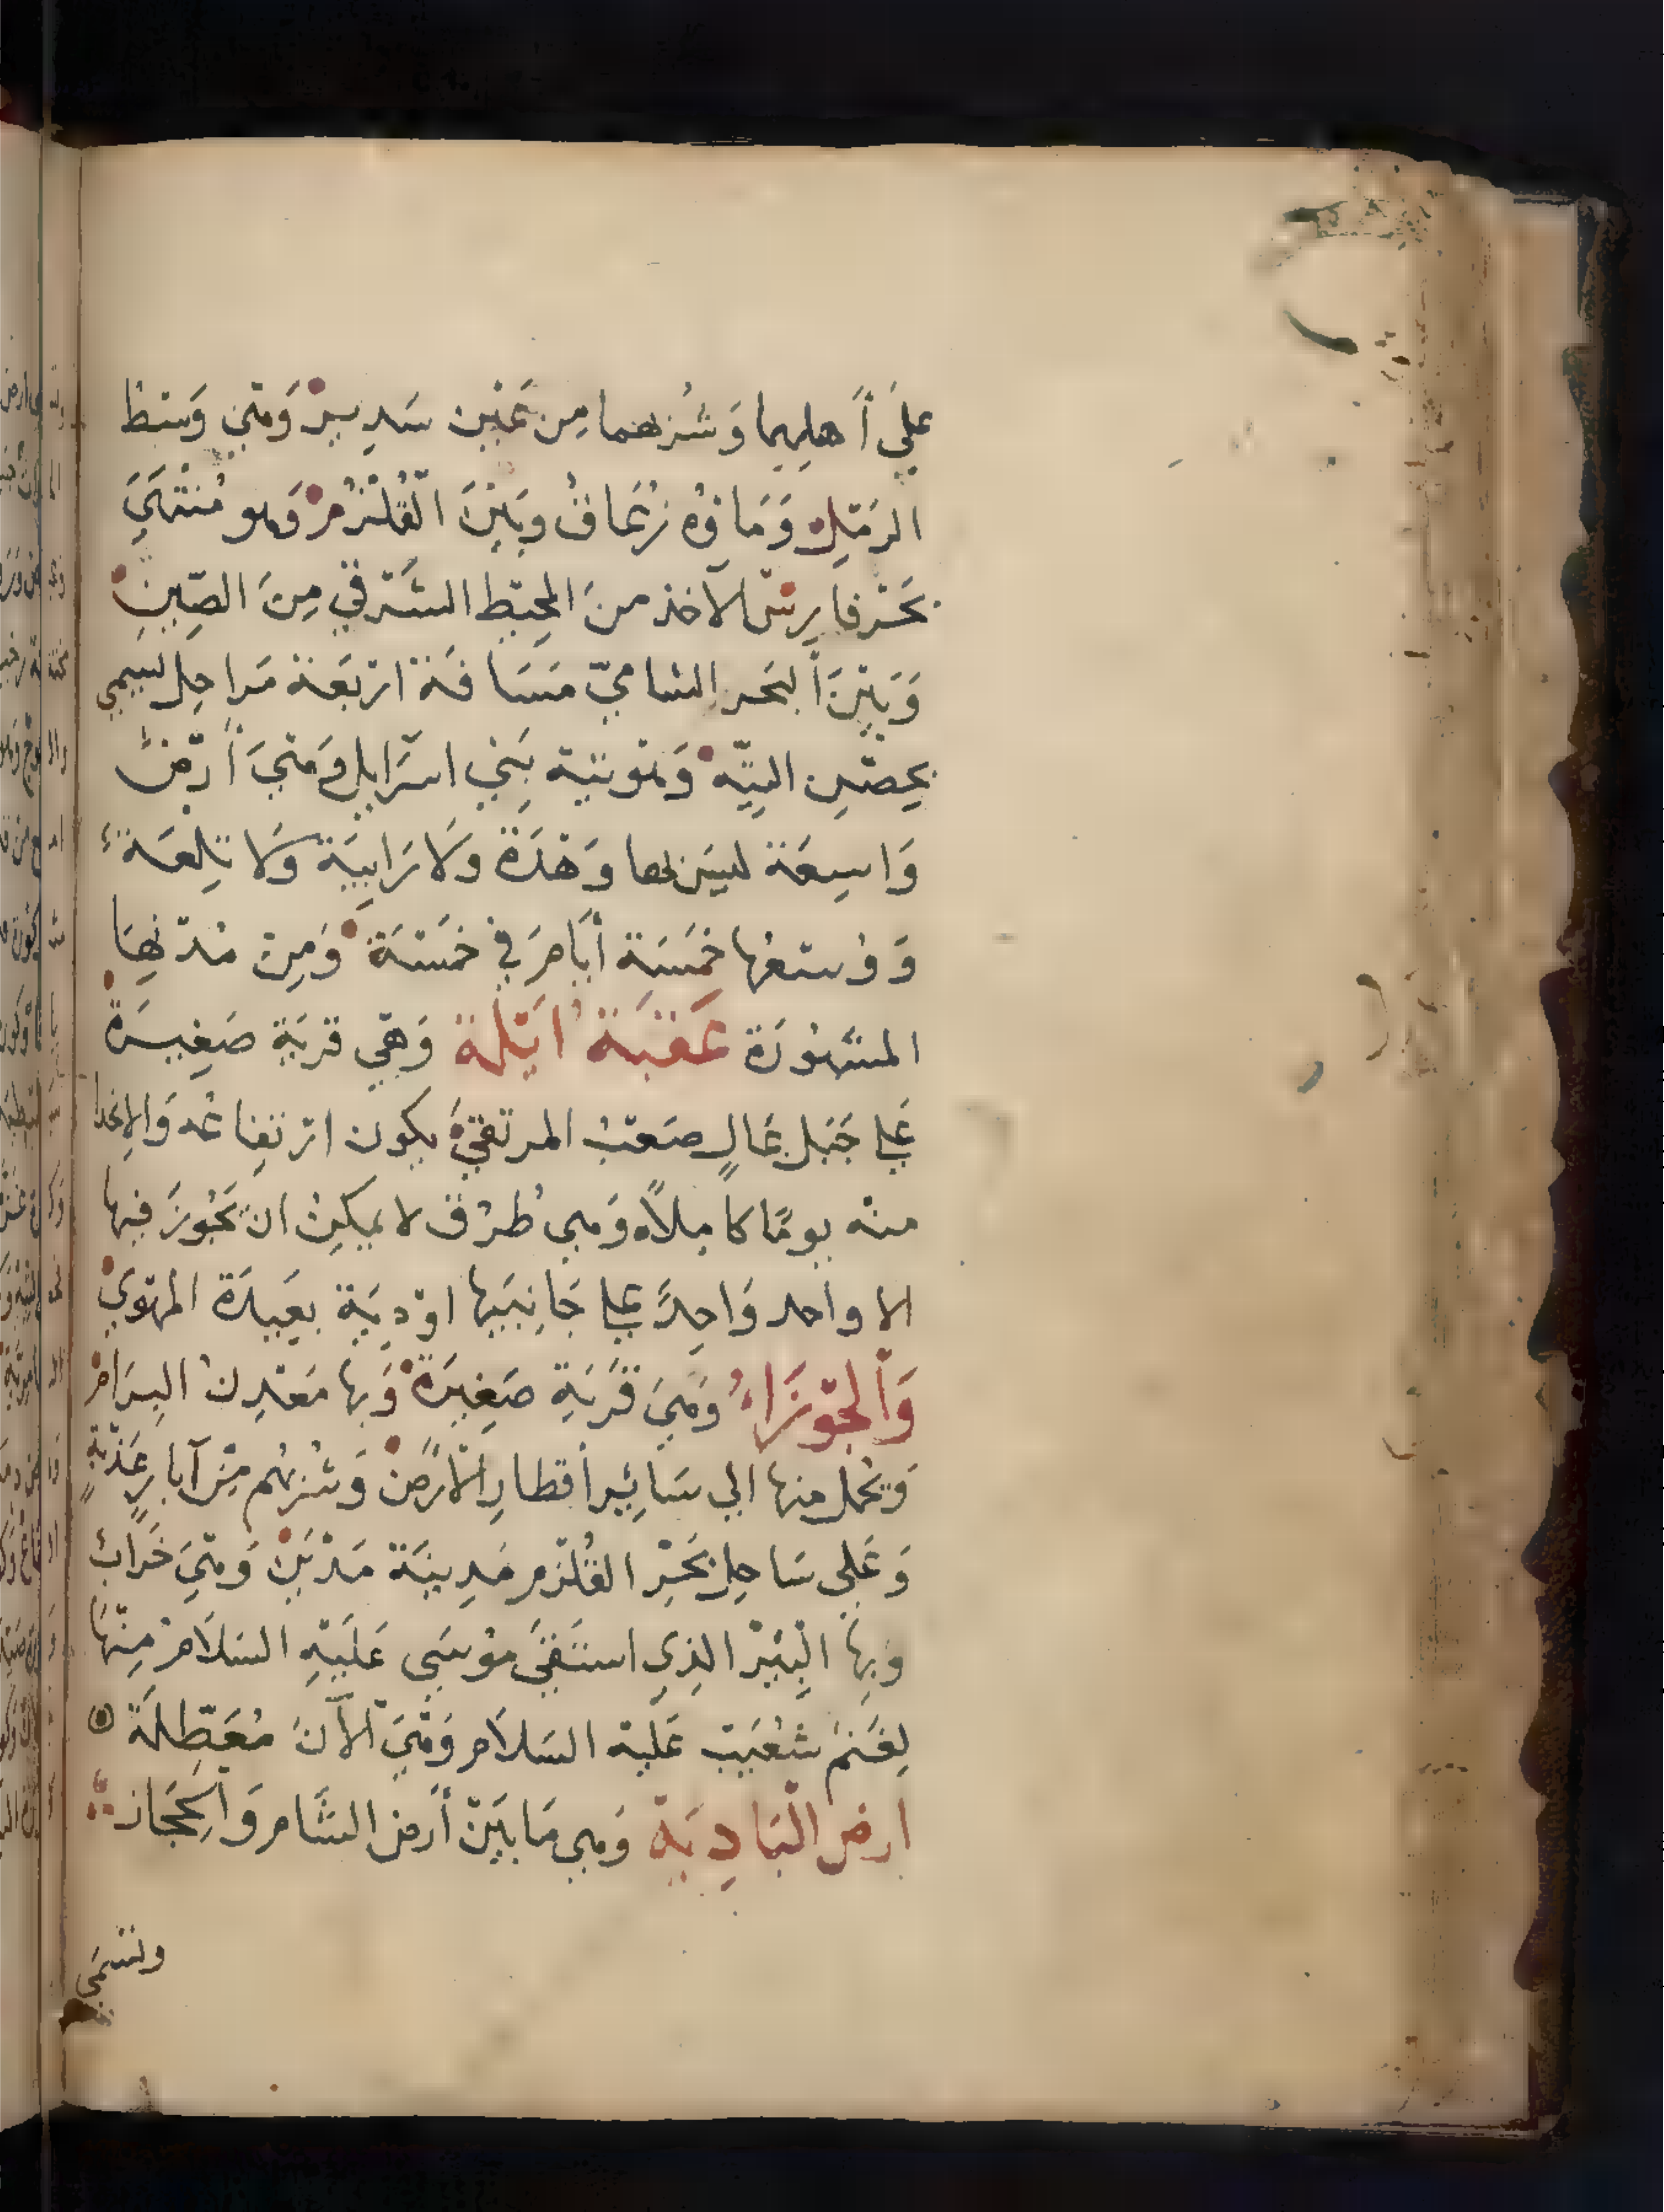 عليَ أَهلِيهما وَشُربهما مِن عَيْن سَدِيرْ وَهْيَ وَسَط
الرَمْلِ وَمَاؤه زُعَاقُ وبَيْنَ الْقُلْزُمْ وَهو مُنْتَهَيَ
بَحْر فارسْ الآخذ منَ المحيْط الشَرقي مِنَ الصِّينِ
وَبَيْنَ اَلبَحر الشاميّ مَسَافَة اربَعَة مَراحِل لسيمي
بِحِصْنِ التِيْه وَهْوَ تيه بَنِي اسْرَايل وَهْيَ أَرْضُ
وَاسِعَة ليسَ لها وَهْدَة وَلَا رَابِيَة وَلَا تلِعَة
وَوُسْعُها خمَسَة أيَامَ فِي خمَسْة وَمِن مُدنِهَا
المشهُورَة عَقَبَة اَيْلَة وَهْي قريَة صَغِيرَة
عَلي جَبَل عَالٍ صَعْبْ المرتقيْ يكون ارْتفِاعُه وَالاِنحدا
منه يومًا كامِلاً وَهي طُرُق لا يمكِنْ ان يَجُوزَ فيها
الا واحد وَاحِدً علي جَانِبَيها اوْدِيَة بعَيدَة المهْوَيْ
وَاَلْجَوْزَاءُ وَهيَ قَريَة صَغِيرَة وَبها مَعْدِنْ البِرَامْ
وَيحْمل منها الي سَائِير أقطارِ الْاَرْضْ وَشُربهُم مِنْ آبارٍ عَذْبَةٍ
وَعَلي سَاحِل بَحْرِ القُلْزم مَدِينَة مَدْيَن وَهْيَ خَرَابْ
وَبِهَا الْبِئيْر الذِي اسْتَقَيَ مُوسَي عَلَيْهِ السَلَامْ مِنْهَا
لِغَنَمْ شعُيَبْ عَليْه السَلاَم وَهْيَ اَلآنَ مُعَطَّلَةْ
ارض الْبَادِيَة وَهي مَا بَيْنَ أَرض الشَّام وَالحِجَاز
وتسَمي